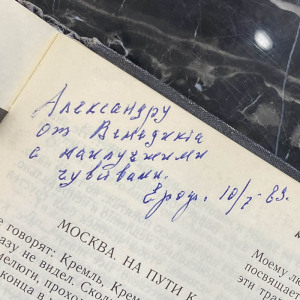 Александру
от Венедикта
с наилучшими
чувствами.
Ероф. 10/I-89.
МОСКВА. НА ПУТИ К
е говорят: Кремль, Крем
азу не видел. Скол
мелюги, прохо
конца в
Моему лю
посвящает
эти тра